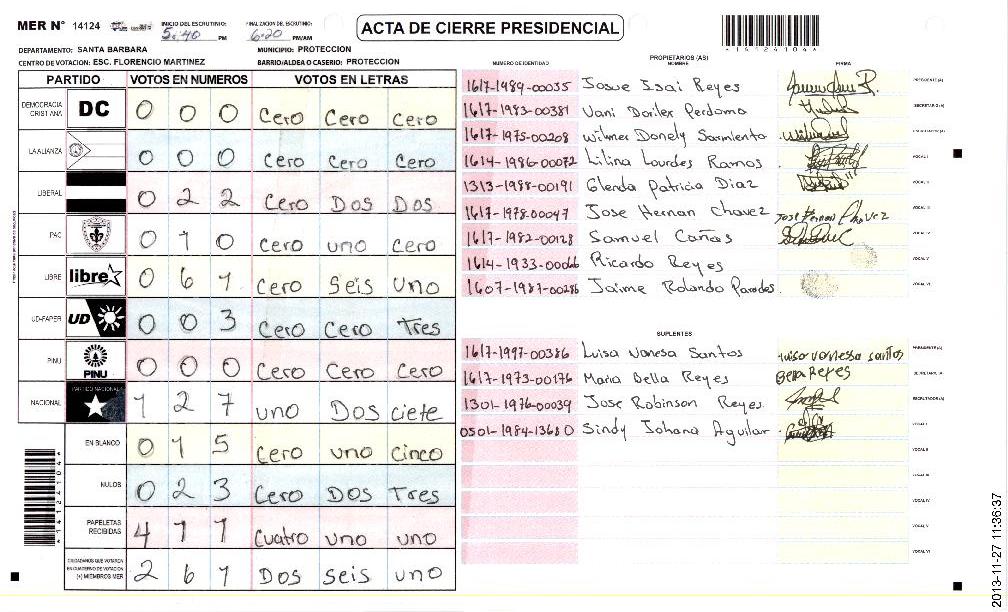 MER N° 14124 INICIO DEL ESCRUTINIO: 5:40 PM FINALIZACION DEL ESCRUTINIO: 6:20 PM/AM
ACTA DE CIERRE PRESIDENCIAL
*14124104*
DEPARTAMENTO: SANTA BARBARA MUNICIPIO: PROTECCION
CENTRO DE VOTACION: ESC. FLORENCIO MARTINEZ BARRIO/ALDEA O CASERIO: PROTECCION
PARTIDO VOTOS EN NUMEROS VOTOS EN LETRAS
DEMOCRACIA CRISTIANA DC 0 0 0 Cero Cero Cero
LA ALIANZA 0 0 0 Cero Cero Cero
LIBERAL 0 2 2 Cero Dos Dos
PAC 0 1 0 Cero uno Cero
LIBRE libre 0 6 1 Cero Seis Uno
UD-FAPER UD 0 0 3 Cero Cero Tres
PINU PINU 0 0 0 Cero Cero Cero
NACIONAL PARTIDO NACIONAL 1 2 7 uno Dos ciete
EN BLANCO 0 1 5 Cero uno cinco
NULOS 0 2 3 Cero Dos Tres
PAPELETAS RECIBIDAS 4 1 1 Cuatro uno uno
CIUDADANOS QUE VOTARON EN CUADERNO DE VOTACION (+) MIEMBROS MER 2 6 1 Dos seis uno
*14124104*
PROPIETARIOS (AS)
NUMERO DE IDENTIDAD NOMBRE FIRMA
1617-1989-00035 Josue Isai Reyes PRESIDENTE(A)
1617-1983-00381 Vani Doriler Perdomo SECRETARIO(A)
1617-1975-00208 Wilmer Donely Sarmiento ESCRUTADOR(A)
1614-1986-00072 Lilina Lourdes Ramos VOCAL I
1313-1988-00191 Glenda Patricia Diaz VOCAL II
1617-1978-00047 Jose Hernan Chavez Jose Hernan Chavez VOCAL III
1617-1982-00128 Samuel Cañas VOCAL IV
1614-1933-00066 Ricardo Reyes VOCAL V
1607-1987-00286 Jaime Rolando Paredes VOCAL VI
SUPLENTES
1617-1997-00386 Luisa Vanesa Santos Luisa vanessa santos PRESIDENTE(A)
1617-1973-00176 Maria Bella Reyes Bella Reyes SECRETARIO(A)
1301-1976-00039 Jose Robinson Reyes ESCRUTADOR(A)
0501-1984-13680 Sindy Johana Aguilar VOCAL I
VOCAL II
VOCAL III
VOCAL IV
VOCAL V
VOCAL VI
2013-11-27 11:36:37